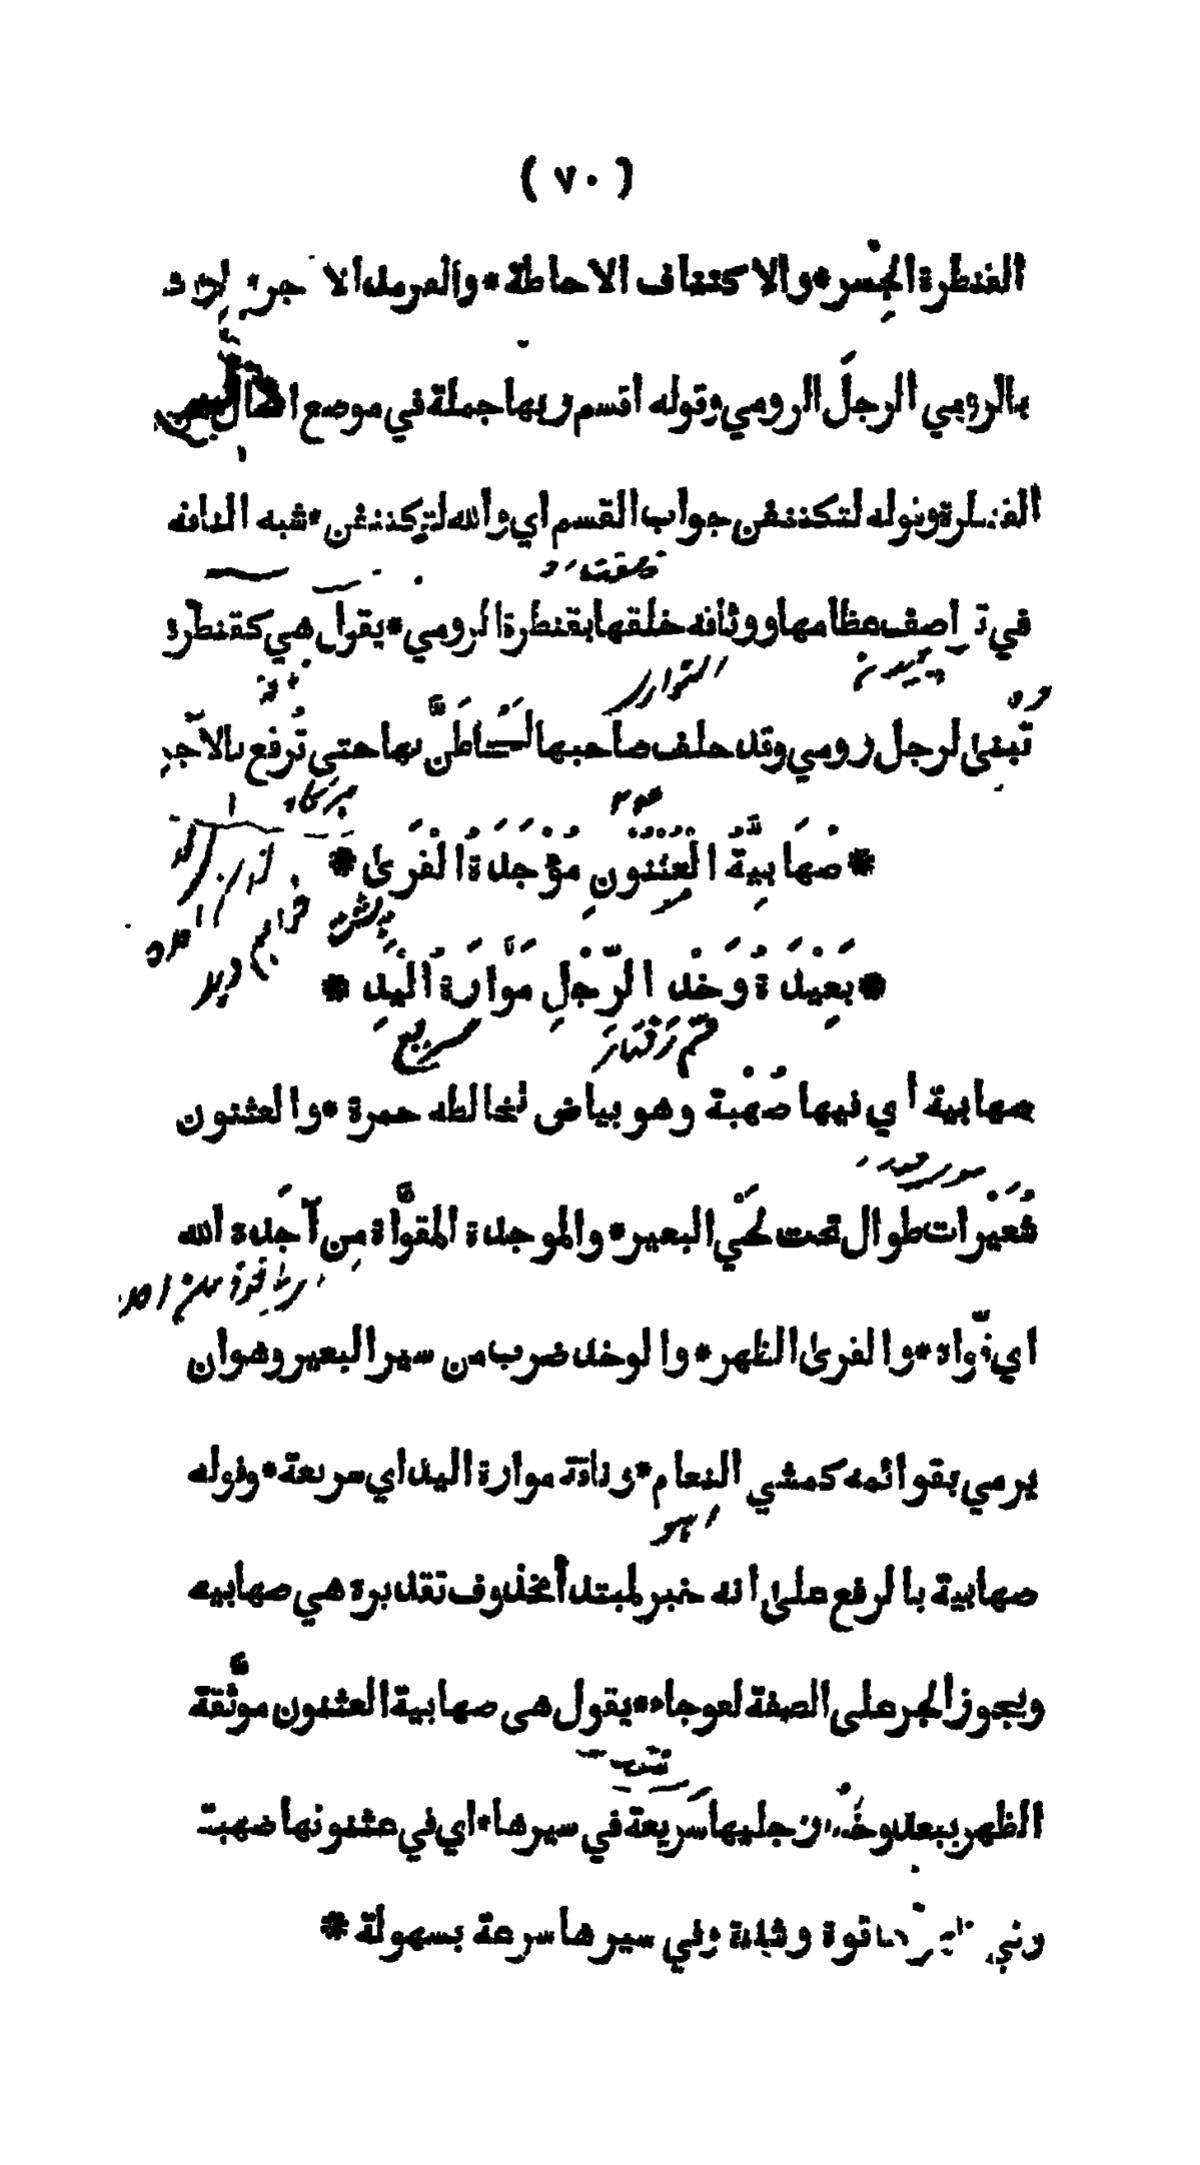 ( ٧٠ )
القنطرة الجسر * والاكتناف الاحاطة * والقرمد الآجر
بالرومي الرجل الرومي وقوله اقسم ربها جملة في موضع الحال من
القنطرة وقوله لتكتنفن جواب القسم اي والله لتكتنفن * شبه الناقة
في تراصف عظامها ووثاقة خلقها بقنطرة الرومي * يقول هي كقنطرة
تُبنى لرجل رومي وقد حلف صاحبها لَيُحاطَنَّ بها حتى تُرفع بالآجر
* صُهَابِيَّةُ الْعُثْنُونِ مُؤْجَدَةُ الْقَرَىٰ *
* بَعِيْدَةُ وَخْدِ الرِّجْلِ مَوَّارَةُ الْيَدِ *
سريع
صهابية اي فيها صُهْبة وهو بياض تخالطه حمرة * والعثنون
شُعَيْرات طوال تحت لَحْي البعير * والموجدة المقوَّاة مِن آجَدة الله
اي قوّاه * والقرى الظهر * والوخد ضرب من سير البعير وهو ان
يرمي بقوائمه كمشي النعام * وناقة موارة اليد اي سريعة * وقوله
صهابية بالرفع على انه خبر لمبتدأ محذوف تقديره هي صهابيه
ويجوز الجر على الصفة لعوجاء * يقول هي صهابية العثنون موثَّقة
الظهر يبعد وخد رجليها سريعة في سيرها * اي في عثنونها صهبة
وفي ظهرها قوة وشدة وفي سيرها سرعة بسهولة *